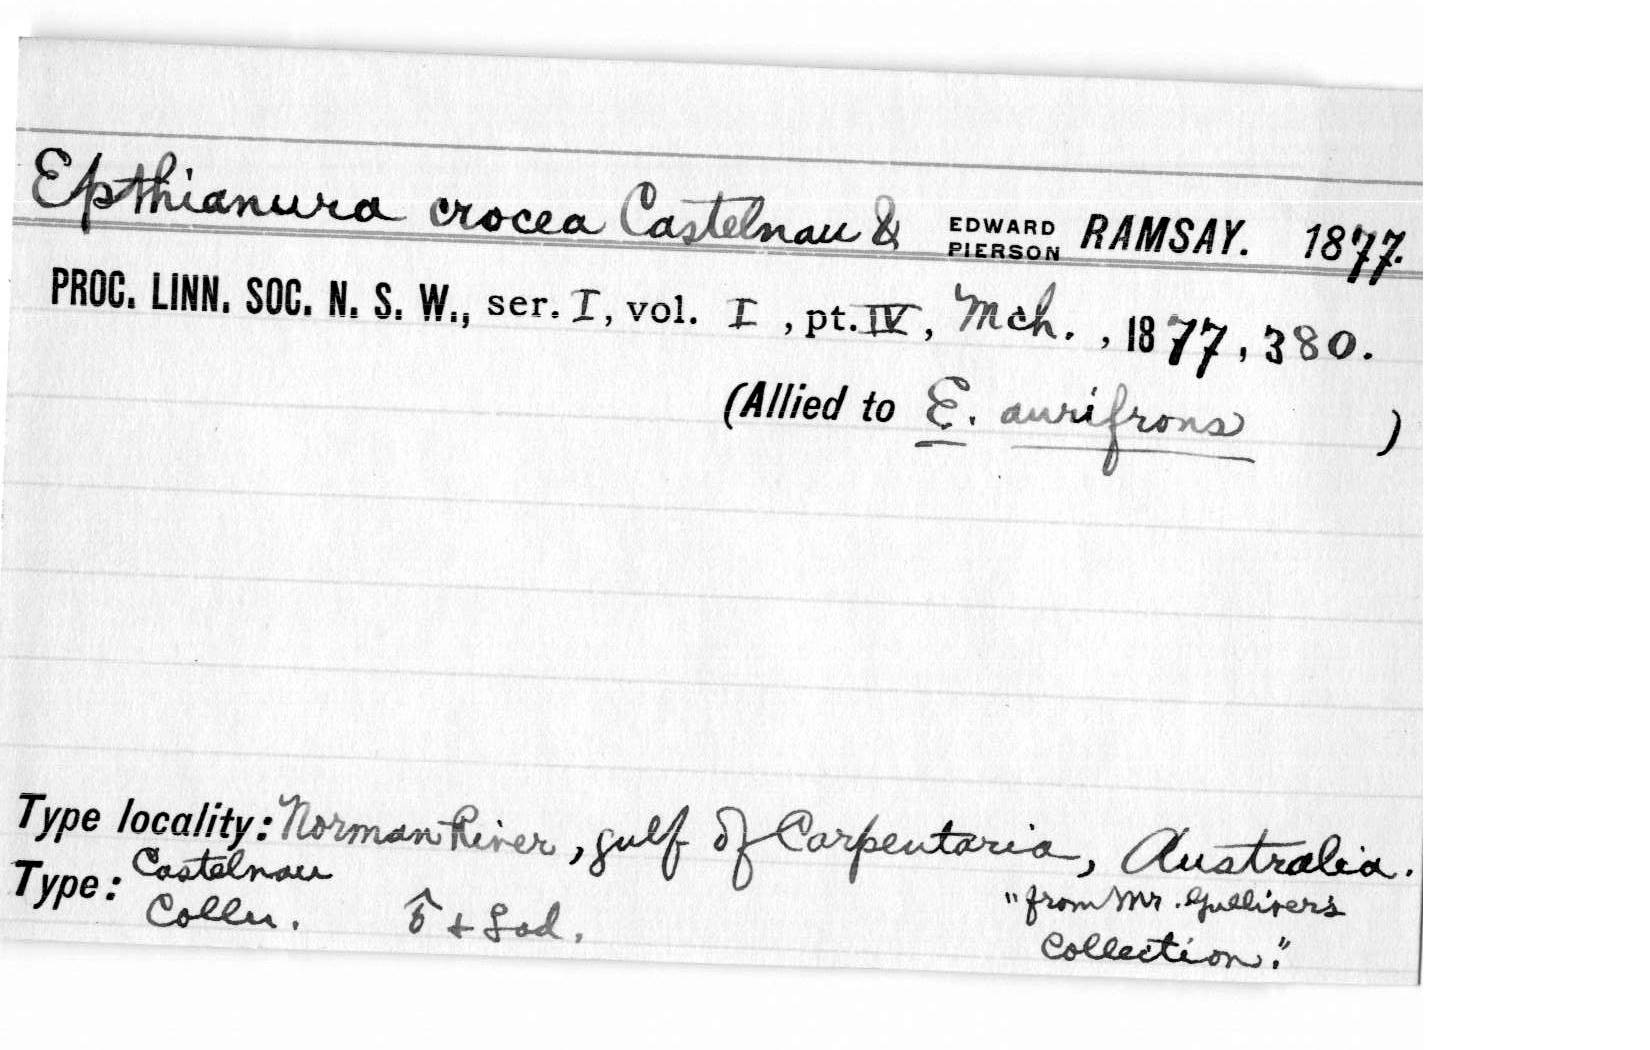 Epthianura crocea Castelnau & EDWARD PIERSON RAMSAY. 1877.
PROC. LINN. SOC. N. S. W., ser. I, vol. I, pt. IV, Mch., 1877, 380.
(Allied to E. aurifrons )
Type locality: Norman River, gulf of Carpentaria, Australia.
Type: Castelnau "from Mr. Gulliver's
Colln. ♂ + ad. Collection."